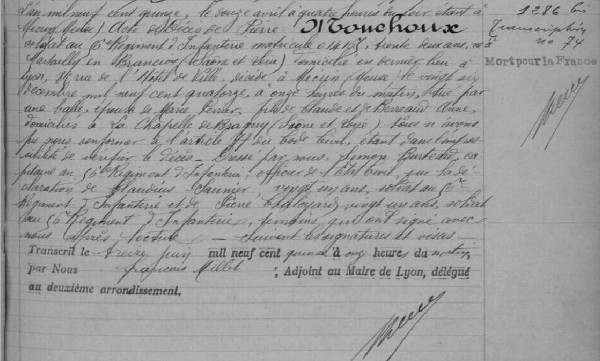 L'an mil neuf cent quinze, le douze avril à quatre heures du soir étant à
Acte de Décès de Pierre Mouchoux
soldat au 6e Régiment d'Infanterie matricule trente deux ans, né à
Marcilly en (Saône et Loire) domicilié en dernier lieu à
Lyon, rue de l'Hôtel de Ville, décédé à Mécrin Meuse, le vingt six
décembre mil neuf cent quatorze, à onze heures du matin, tué par
une balle, époux de Marie fils de Claude et de Anne,
domiciliés à La Chapelle de Bragny (Saône et Loire) Nous n'avons
pu nous conformer à l'article 77 du Code Civil, étant dans l'impos
sibilité de vérifier le décès. Dressé par nous, Simon ca
pitaine au Régiment d'Infanterie officier de l'état Civil, sur la dé
claration de Claudius vingt un ans, soldat au
Régiment d'Infanterie et de Pierre vingt un ans, soldat
au Régiment d'Infanterie, témoins, qui ont signé avec
nous après lecture — suivent les signatures et visas —
Transcrit le treize juin mil neuf cent quinze à onze heure du matin,
par Nous François Millet ; Adjoint au Maire de Lyon, délégué
au deuxième arrondissement.
1286 bis
Transcription
no 74
Mort pour la France